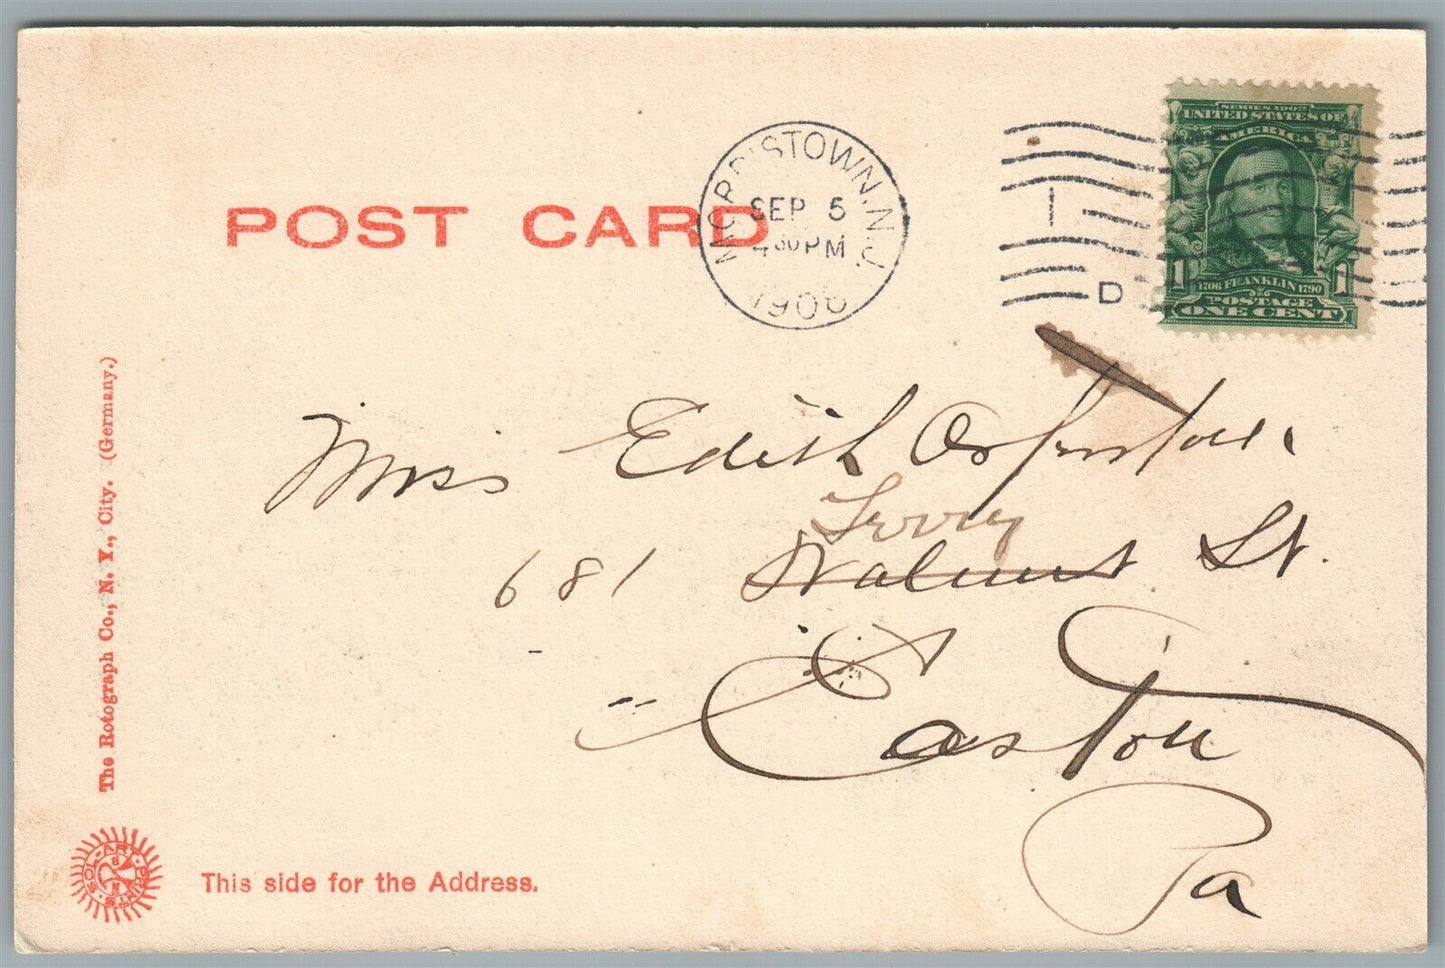 SERIES 1902
UNITED STATES OF
AMERICA
1 1
1706 FRANKLIN 1790
POSTAGE
ONE CENT
MORRISTOWN, N.J.
SEP 5
4 30 PM
1906
1
D
POST CARD
Miss Edith
Ferry
681 Walnut St.
Easton
Pa
The Rotograph Co., N. Y., City. (Germany.)
SOL-ART PRINTS
This side for the Address.